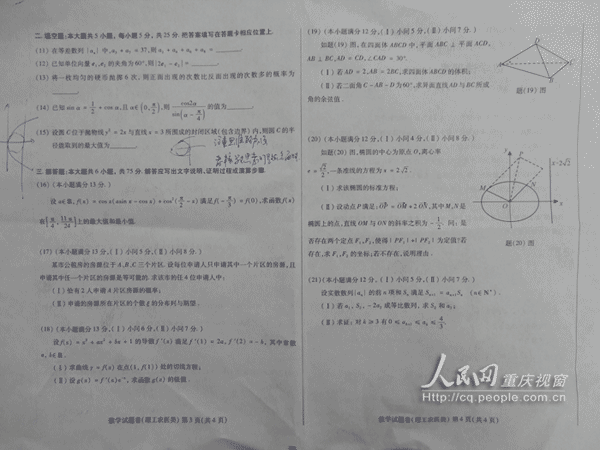 二、填空题:本大题共5小题,每小题5分,共25分.把答案填写在答题卡相应位置上.
(11) 在等差数列{aₙ}中,a₃+a₇=37,则a₂+a₄+a₆+a₈=
(12) 已知单位向量e₁,e₂的夹角为60°,则|2e₁-e₂|=
(13) 将一枚均匀的硬币抛掷6次,则正面出现的次数比反面出现的次数多的概率为
(14) 已知sinα=1/2+cosα,且α∈(0,π/2),则cos2α/sin(α-π/4)的值为
(15) 设圆C位于抛物线y²=2x与直线x=3所围成的封闭区域(包含边界)内,则圆C的半
径能取到的最大值为
三、解答题:本大题共6小题,共75分.解答应写出文字说明,证明过程或演算步骤.
(16) (本小题满分13分)
设a∈R,f(x)=cosx(asinx-cosx)+cos²(π/2-x)满足f(-π/3)=f(0),求函数f(x)
在[π/4,11π/24]上的最大值和最小值.
(17) (本小题满分13分,(Ⅰ)小问5分,(Ⅱ)小问8分.)
某市公租房的房源位于A,B,C三个片区.设每位申请人只申请其中一个片区的房源,且
申请其中任一个片区的房源是等可能的.求该市的任4位申请人中:
(Ⅰ) 恰有2人申请A片区房源的概率;
(Ⅱ) 申请的房源所在片区的个数ξ的分布列与期望.
(18) (本小题满分13分,(Ⅰ)小问6分,(Ⅱ)小问7分.)
设f(x)=x³+ax²+bx+1的导数f′(x)满足f′(1)=2a,f′(2)=-b,其中常数
a,b∈R.
(Ⅰ) 求曲线y=f(x)在点(1,f(1))处的切线方程;
(Ⅱ) 设g(x)=f′(x)e⁻ˣ,求函数g(x)的极值.
数学试题卷(理工农医类) 第3页(共4页)
(19) (本小题满分12分,(Ⅰ)小问5分,(Ⅱ)小问7分.)
如题(19)图,在四面体ABCD中,平面ABC⊥平面ACD,
AB⊥BC,AD=CD,∠CAD=30°
(Ⅰ) 若AD=2,AB=2BC,求四面体ABCD的体积;
(Ⅱ) 若二面角C-AB-D为60°,求异面直线AD与BC所成
角的余弦值.
题(19)图
(20) (本小题满分12分,(Ⅰ)小问4分,(Ⅱ)小问8分.)
如题(20)图,椭圆的中心为原点O,离心率
e=√2/2,一条准线的方程为x=2√2.
(Ⅰ) 求该椭圆的标准方程;
(Ⅱ) 设动点P满足:OP=OM+2ON,其中M,N是
椭圆上的点,直线OM与ON的斜率之积为-1/2.问:是
否存在两个定点F₁,F₂,使得|PF₁|+|PF₂|为定值?若
存在,求F₁,F₂的坐标;若不存在,说明理由.
x=2√2
题(20)图
(21) (本小题满分12分,(Ⅰ)小问5分,(Ⅱ)小问7分.)
设实数数列{aₙ}的前n项和Sₙ满足Sₙ₊₁=aₙ₊₁Sₙ (n∈N*).
(Ⅰ) 若a₁,S₂,-2a₂成等比数列,求S₂和a₃;
(Ⅱ) 求证:对k≥3有0≤aₖ₊₁≤aₖ≤4/3.
数学试题卷(理工农医类) 第4页(共4页)
人民网 重庆视窗
http://cq.people.com.cn